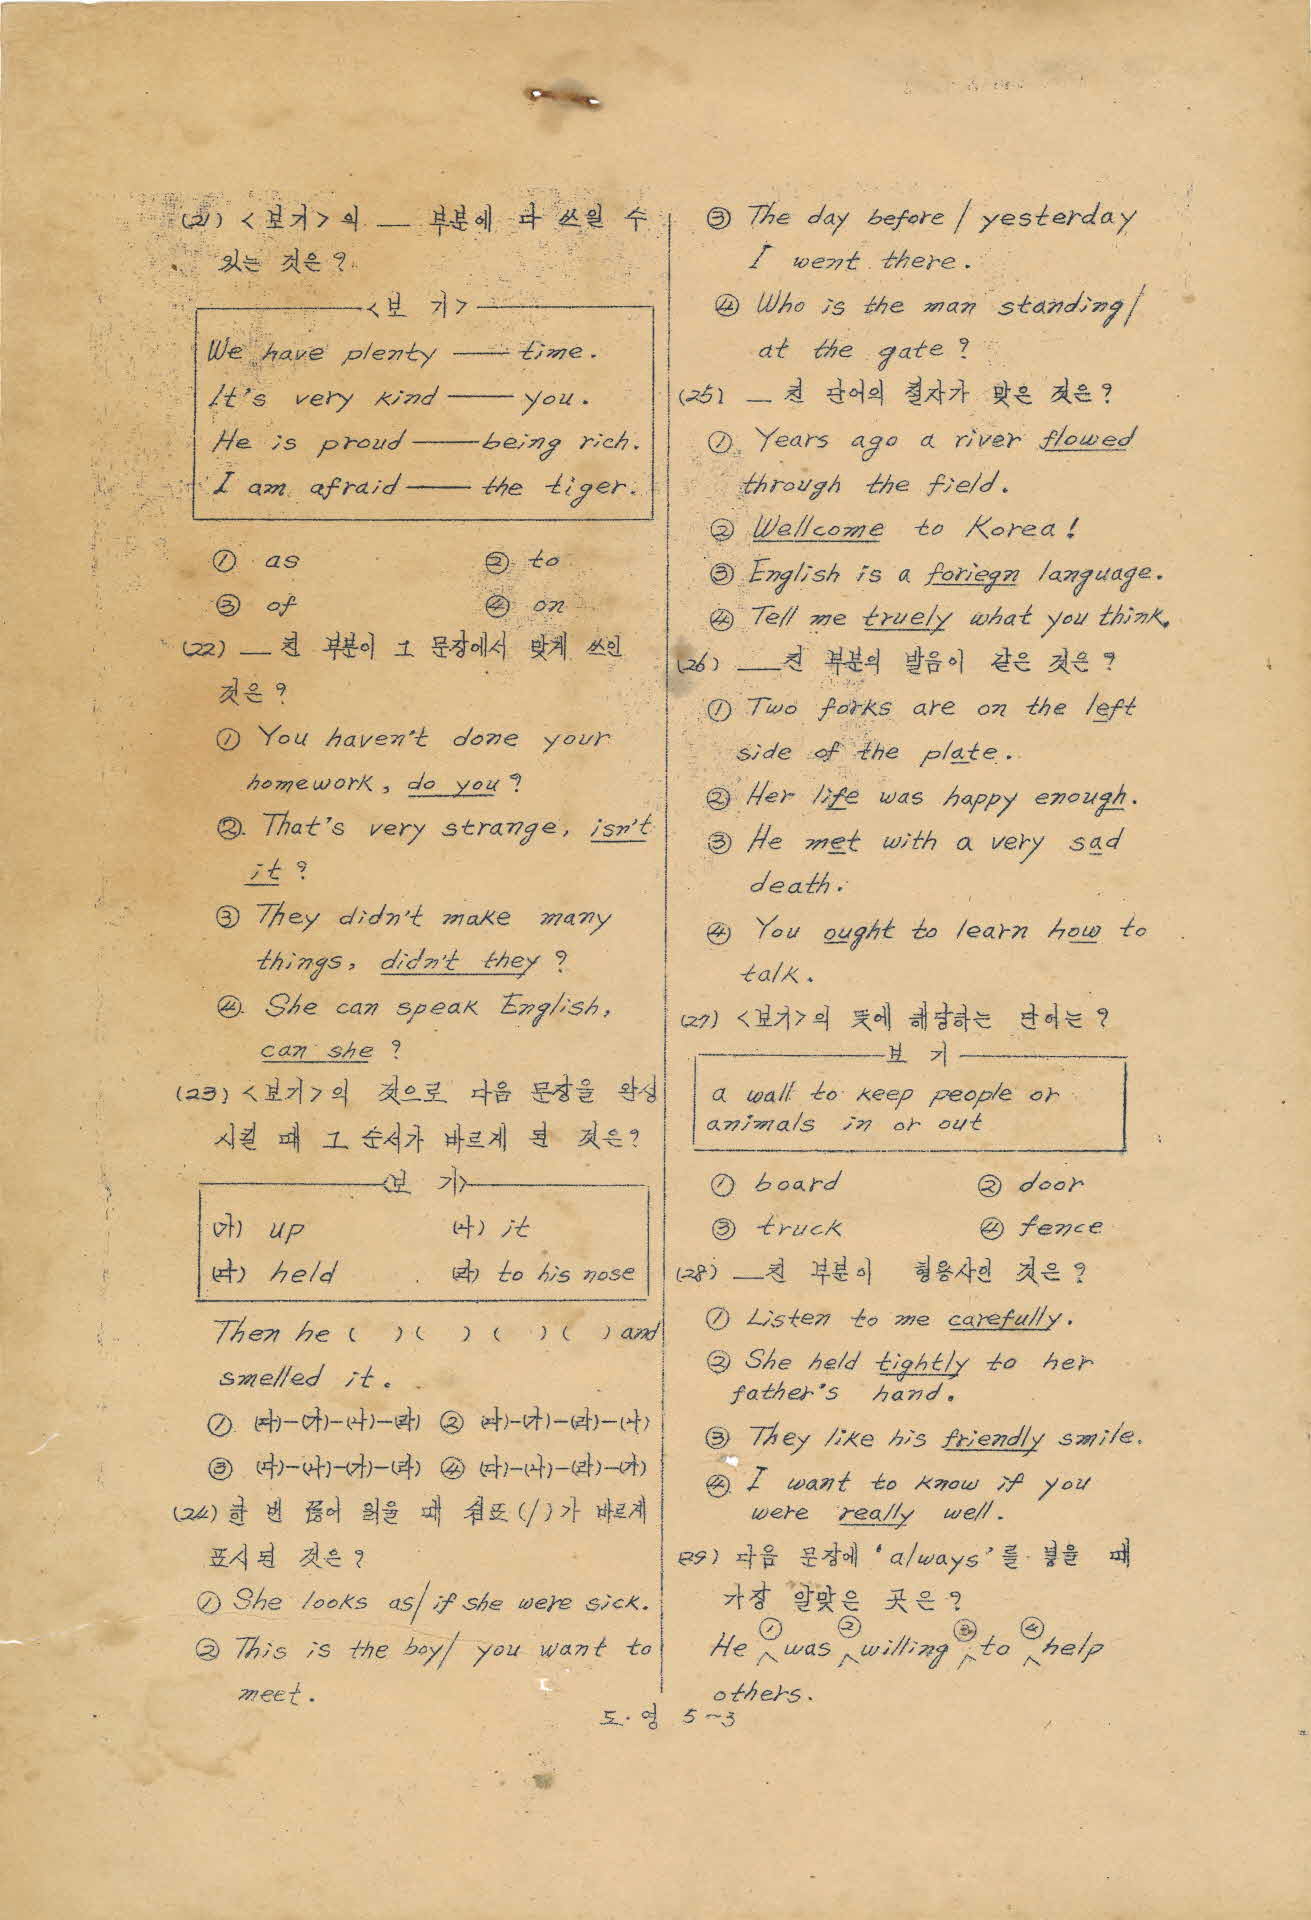 (21) <보기>의 __ 부분에 다 쓰일 수
있는 것은?
<보 기>
We have plenty —— time.
It's very kind —— you.
He is proud —— being rich.
I am afraid —— the tiger.
① as ② to
③ of ④ on
(22) __친 부분이 그 문장에서 맞게 쓰인
것은?
① You haven't done your
homework, do you?
②. That's very strange, isn't
it?
③ They didn't make many
things, didn't they?
④. She can speak English,
can she?
(23) <보기>의 것으로 다음 문장을 완성
시킬 때 그 순서가 바르게 된 것은?
<보 기>
(가) up (나) it
(다) held (라) to his nose
Then he ( ) ( ) ( ) ( ) and
smelled it.
① (다)-(가)-(나)-(라) ② (다)-(가)-(라)-(나)
③ (다)-(나)-(가)-(라) ④ (다)-(나)-(라)-(가)
(24) 한 번 끊어 읽을 때 쉼표(/)가 바르게
표시된 것은?
① She looks as/if she were sick.
② This is the boy/ you want to
meet.
③ The day before / yesterday
I went there.
④ Who is the man standing/
at the gate?
(25) __친 단어의 철자가 맞은 것은?
① Years ago a river flowed
through the field.
② Wellcome to Korea!
③ English is a foriegn language.
④ Tell me truely what you think.
(26) __친 부분의 발음이 같은 것은?
① Two forks are on the left
side of the plate.
② Her life was happy enough.
③ He met with a very sad
death.
④ You ought to learn how to
talk.
(27) <보기>의 뜻에 해당하는 단어는?
보 기
a wall to keep people or
animals in or out
① board ② door
③ truck ④ fence
(28) __친 부분이 형용사인 것은?
① Listen to me carefully.
② She held tightly to her
father's hand.
③ They like his friendly smile.
④ I want to know if you
were really well.
29) 다음 문장에 'always'를 넣을 때
가장 알맞은 곳은?
① ② ③ ④
He ^ was ^ willing ^ to ^ help
others.
도·영 5-3